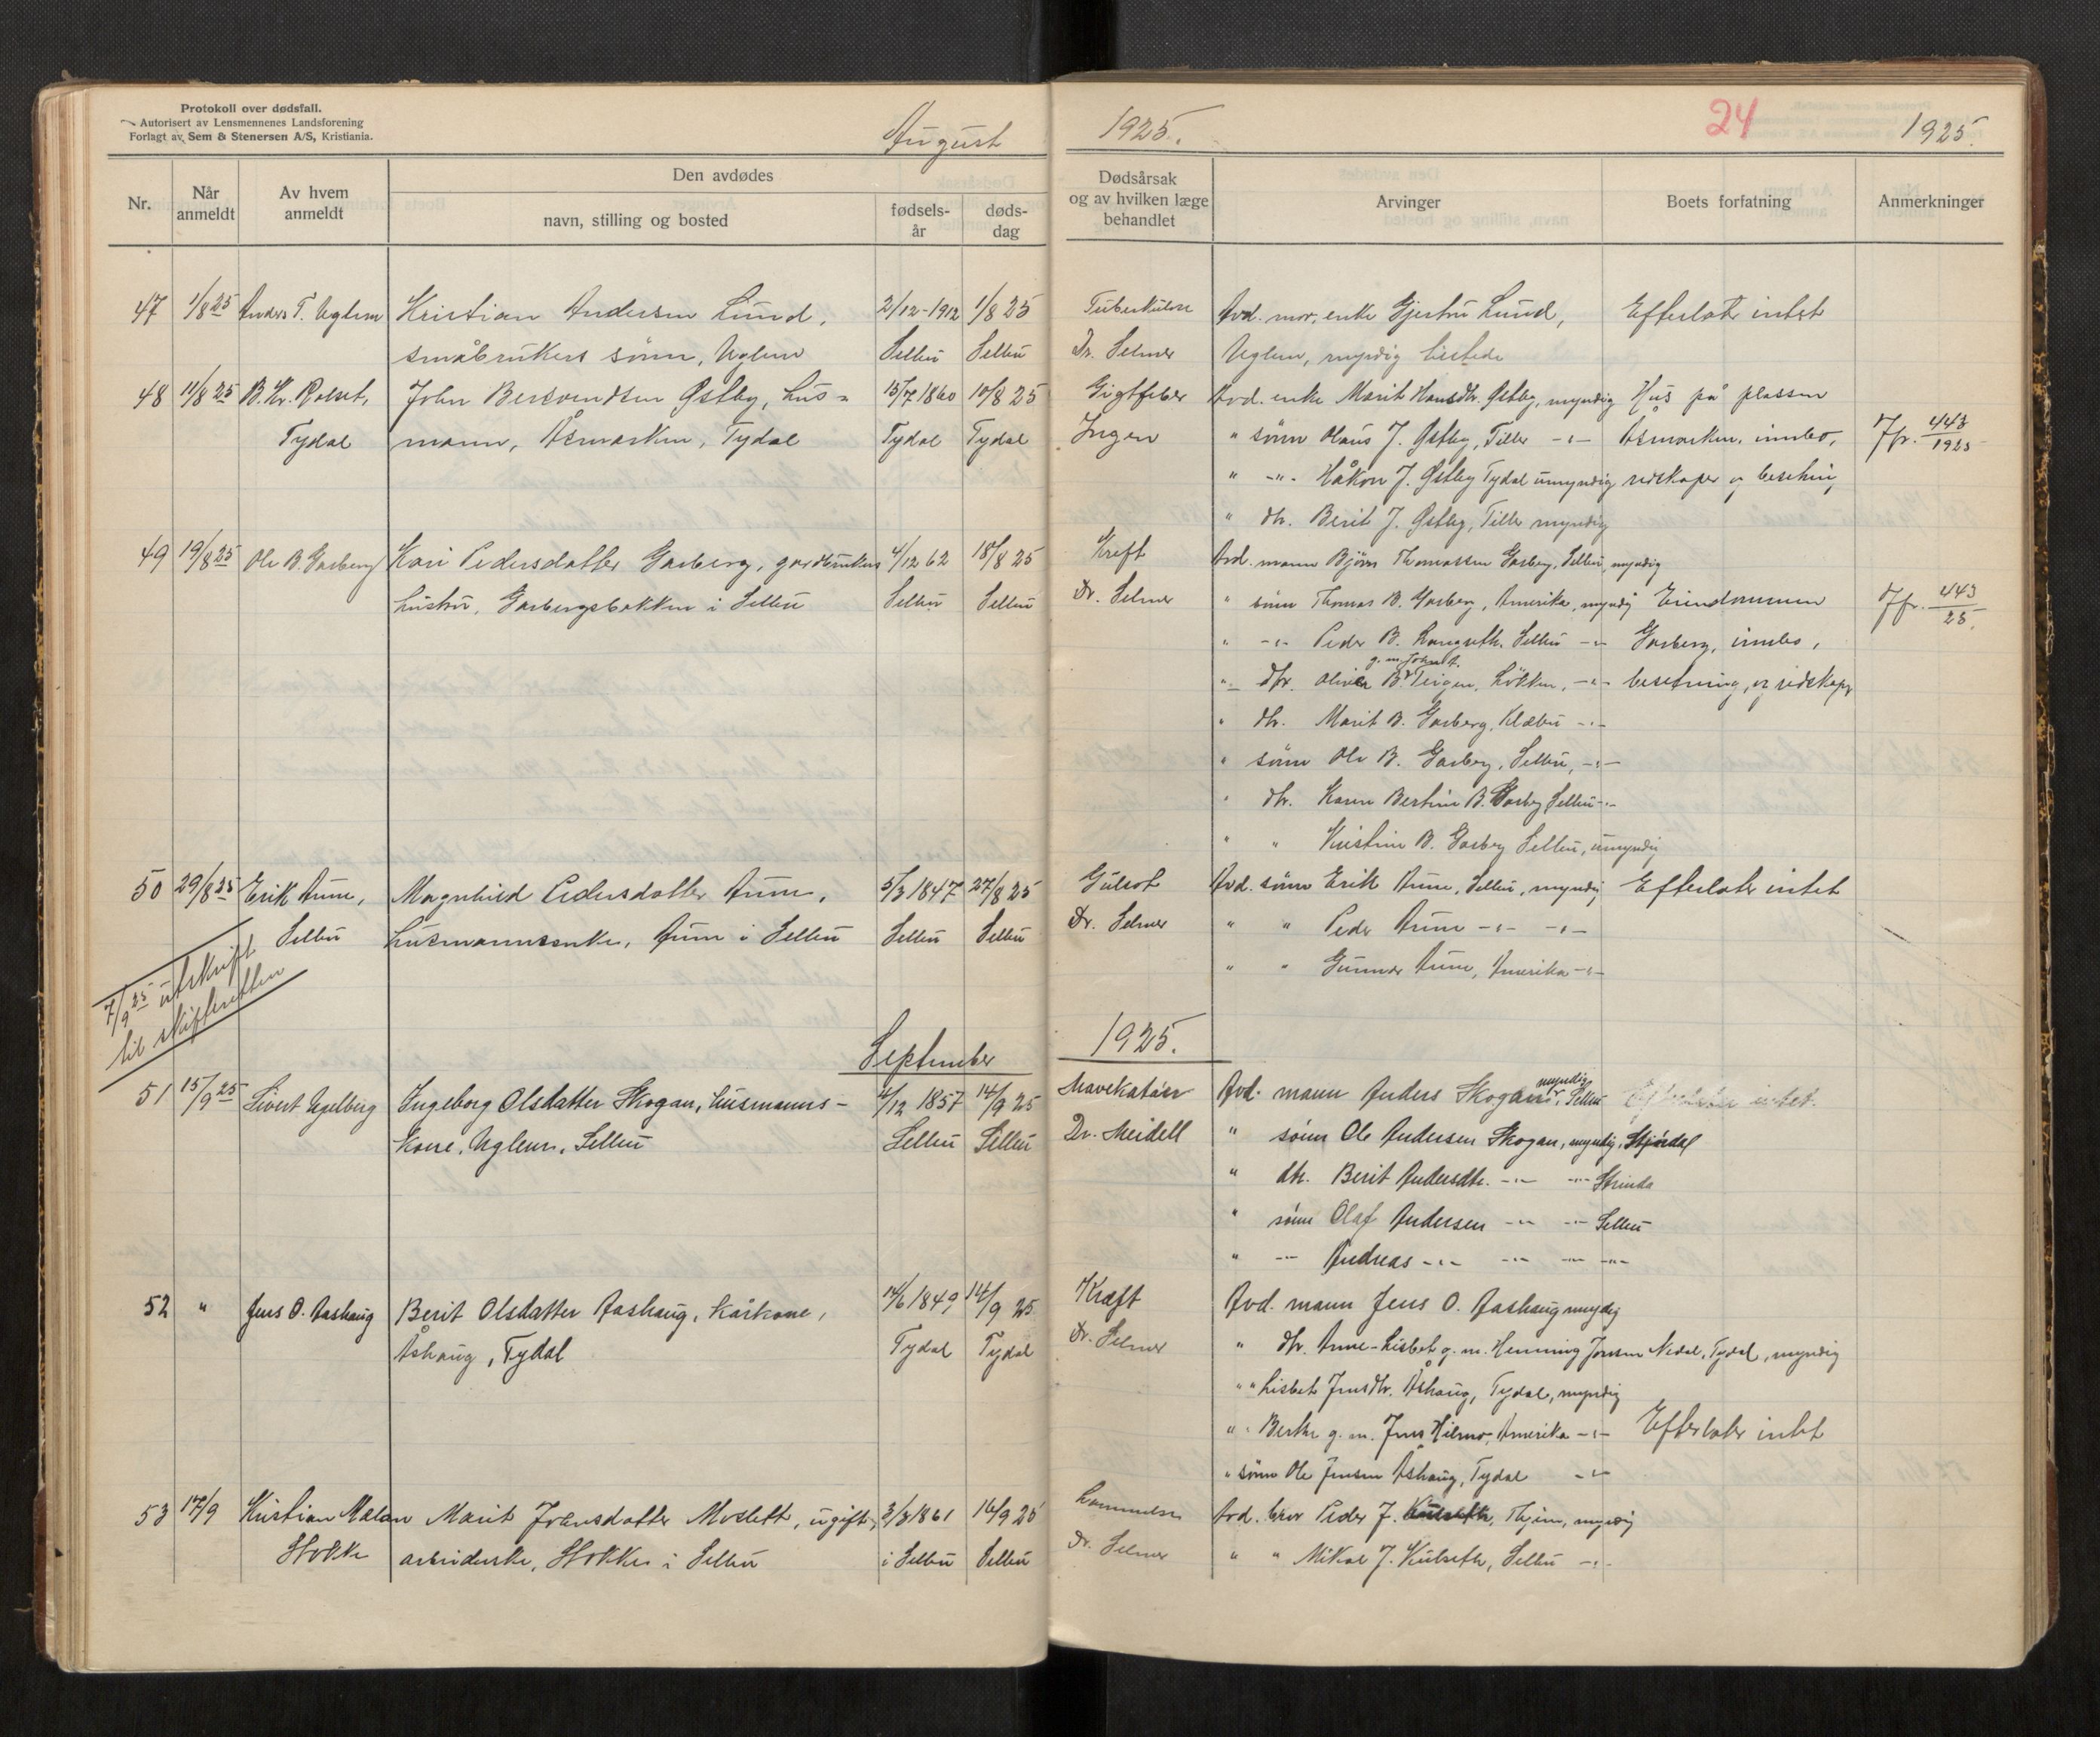 Protokoll over dødsfall.
Autorisert av Lensmennenes Landsforening
Forlagt av Sem & Stenersen A/S, Kristiania.
August 1925. 24 1925.
Nr. Når anmeldt Av hvem anmeldt Den avdødes navn, stilling og bosted fødselsår dødsdag Dødsårsak og av hvilken læge behandlet Arvinger Boets forfatning Anmerkninger
47 1/8 25 Anders T. Uglem Kristian Andersen Lund, 2/12-1912 1/8 25 Tuberkulose Avd. mor, enke Gjertru Lund, Efterlot intet
småbrukers sönn, Uglem Selbu Selbu Dr. Selmer Uglem, myndig
48 11/8 25 B. Kr. Rolset, John Bersvendsen Østby, hus- 15/7 1860 10/8 25 Gigtfeber Avd. enke Marit Hansdtr. Østby, myndig Hus på plassen
Tydal mann, Åsmarken, Tydal Tydal Tydal Ingen " sönn Olaus J. Østby, Tiller -"- Åsmarken, innbo, Jfr. 443/1925
" -"- Håkon J. Østby Tydal umyndig redskaper og
" dtr. Berit J. Østby, Tiller myndig
49 19/8 25 Ole B. Garberg Kari Pedersdatter Garberg, gardbrukers 4/12 62 18/8 25 Kreft Avd. mann Bjørn Thomassen Garberg, Selbu, myndig
hustru, Garbergsbakken i Selbu Selbu Selbu Dr. Selmer " sönn Thomas B. Garberg, Amerika, myndig Eiendommen Jfr. 443/25.
" -"- Peder B. Langseth, Selbu -"- Garberg, innbo,
g. m. John A.
" dtr. Oliva B. Teigen, Løkken, -"- besetning, og redskaper
" dtr. Marit B. Garberg, Klæbu -"-
" sönn Ole B. Garberg, Selbu, -"-
" dtr. Karen Bertine B. Garberg Selbu -"-
" " Kristine B. Garberg Selbu, umyndig
50 29/8 25 Erik Aune, Magnhild Pedersdatter Aune, 5/3 1847 27/8 25 Gulsot Avd. sönn Erik Aune, Selbu, myndig Efterlater intet
Selbu husmannsenke, Aune i Selbu Selbu Selbu Dr. Selmer " " Peder Aune -"- -"-
" " Gunnar Aune, Amerika -"-
7/9 25 utskrift
til skifteretten
September 1925.
51 15/9 25 Sivert Uglberg Ingeborg Olsdatter Skogan, husmanns- 4/12 1857 14/9 25 Mavekatarr Avd. mann Anders Skogan, myndig, Selbu Efterlater intet.
kone, Uglem, Selbu Selbu Selbu Dr. Meidell " sönn Ole Andersen Skogan, myndig, Stjørdal
" dtr. Berit Andersdtr. -"- -"- Strinda
" sönn Olaf Andersen -"- -"- Selbu
" -"- Andreas -"- -"- -"- -"-
52 " Jens O. Aashaug Berit Olsdatter Aashaug, kårkone, 14/6 1849 14/9 25 Kræft Avd. mann Jens O. Aashaug myndig
Åshaug, Tydal Tydal Tydal Dr. Selmer " dtr. Anne-Lisbet g. m. Henning Jonsen Nedal, Tydal, myndig
" " Lisbet Jensdtr. Åshaug, Tydal, myndig
" " Berthe g. m. Jens Hilmo, Amerika -"- Efterlater intet
" sönn Ole Jensen Åshaug, Tydal -"-
53 17/9 Kristian Marit Johnsdatter Moslett, ugift, 3/3 1861 16/9 25 Lammelse Avd. bror Peder J. Kulseth, myndig
Stokke arbeiderske, Stokke i Selbu i Selbu Selbu Dr. Selmer " " Mikal J. Kulseth, Selbu -"-